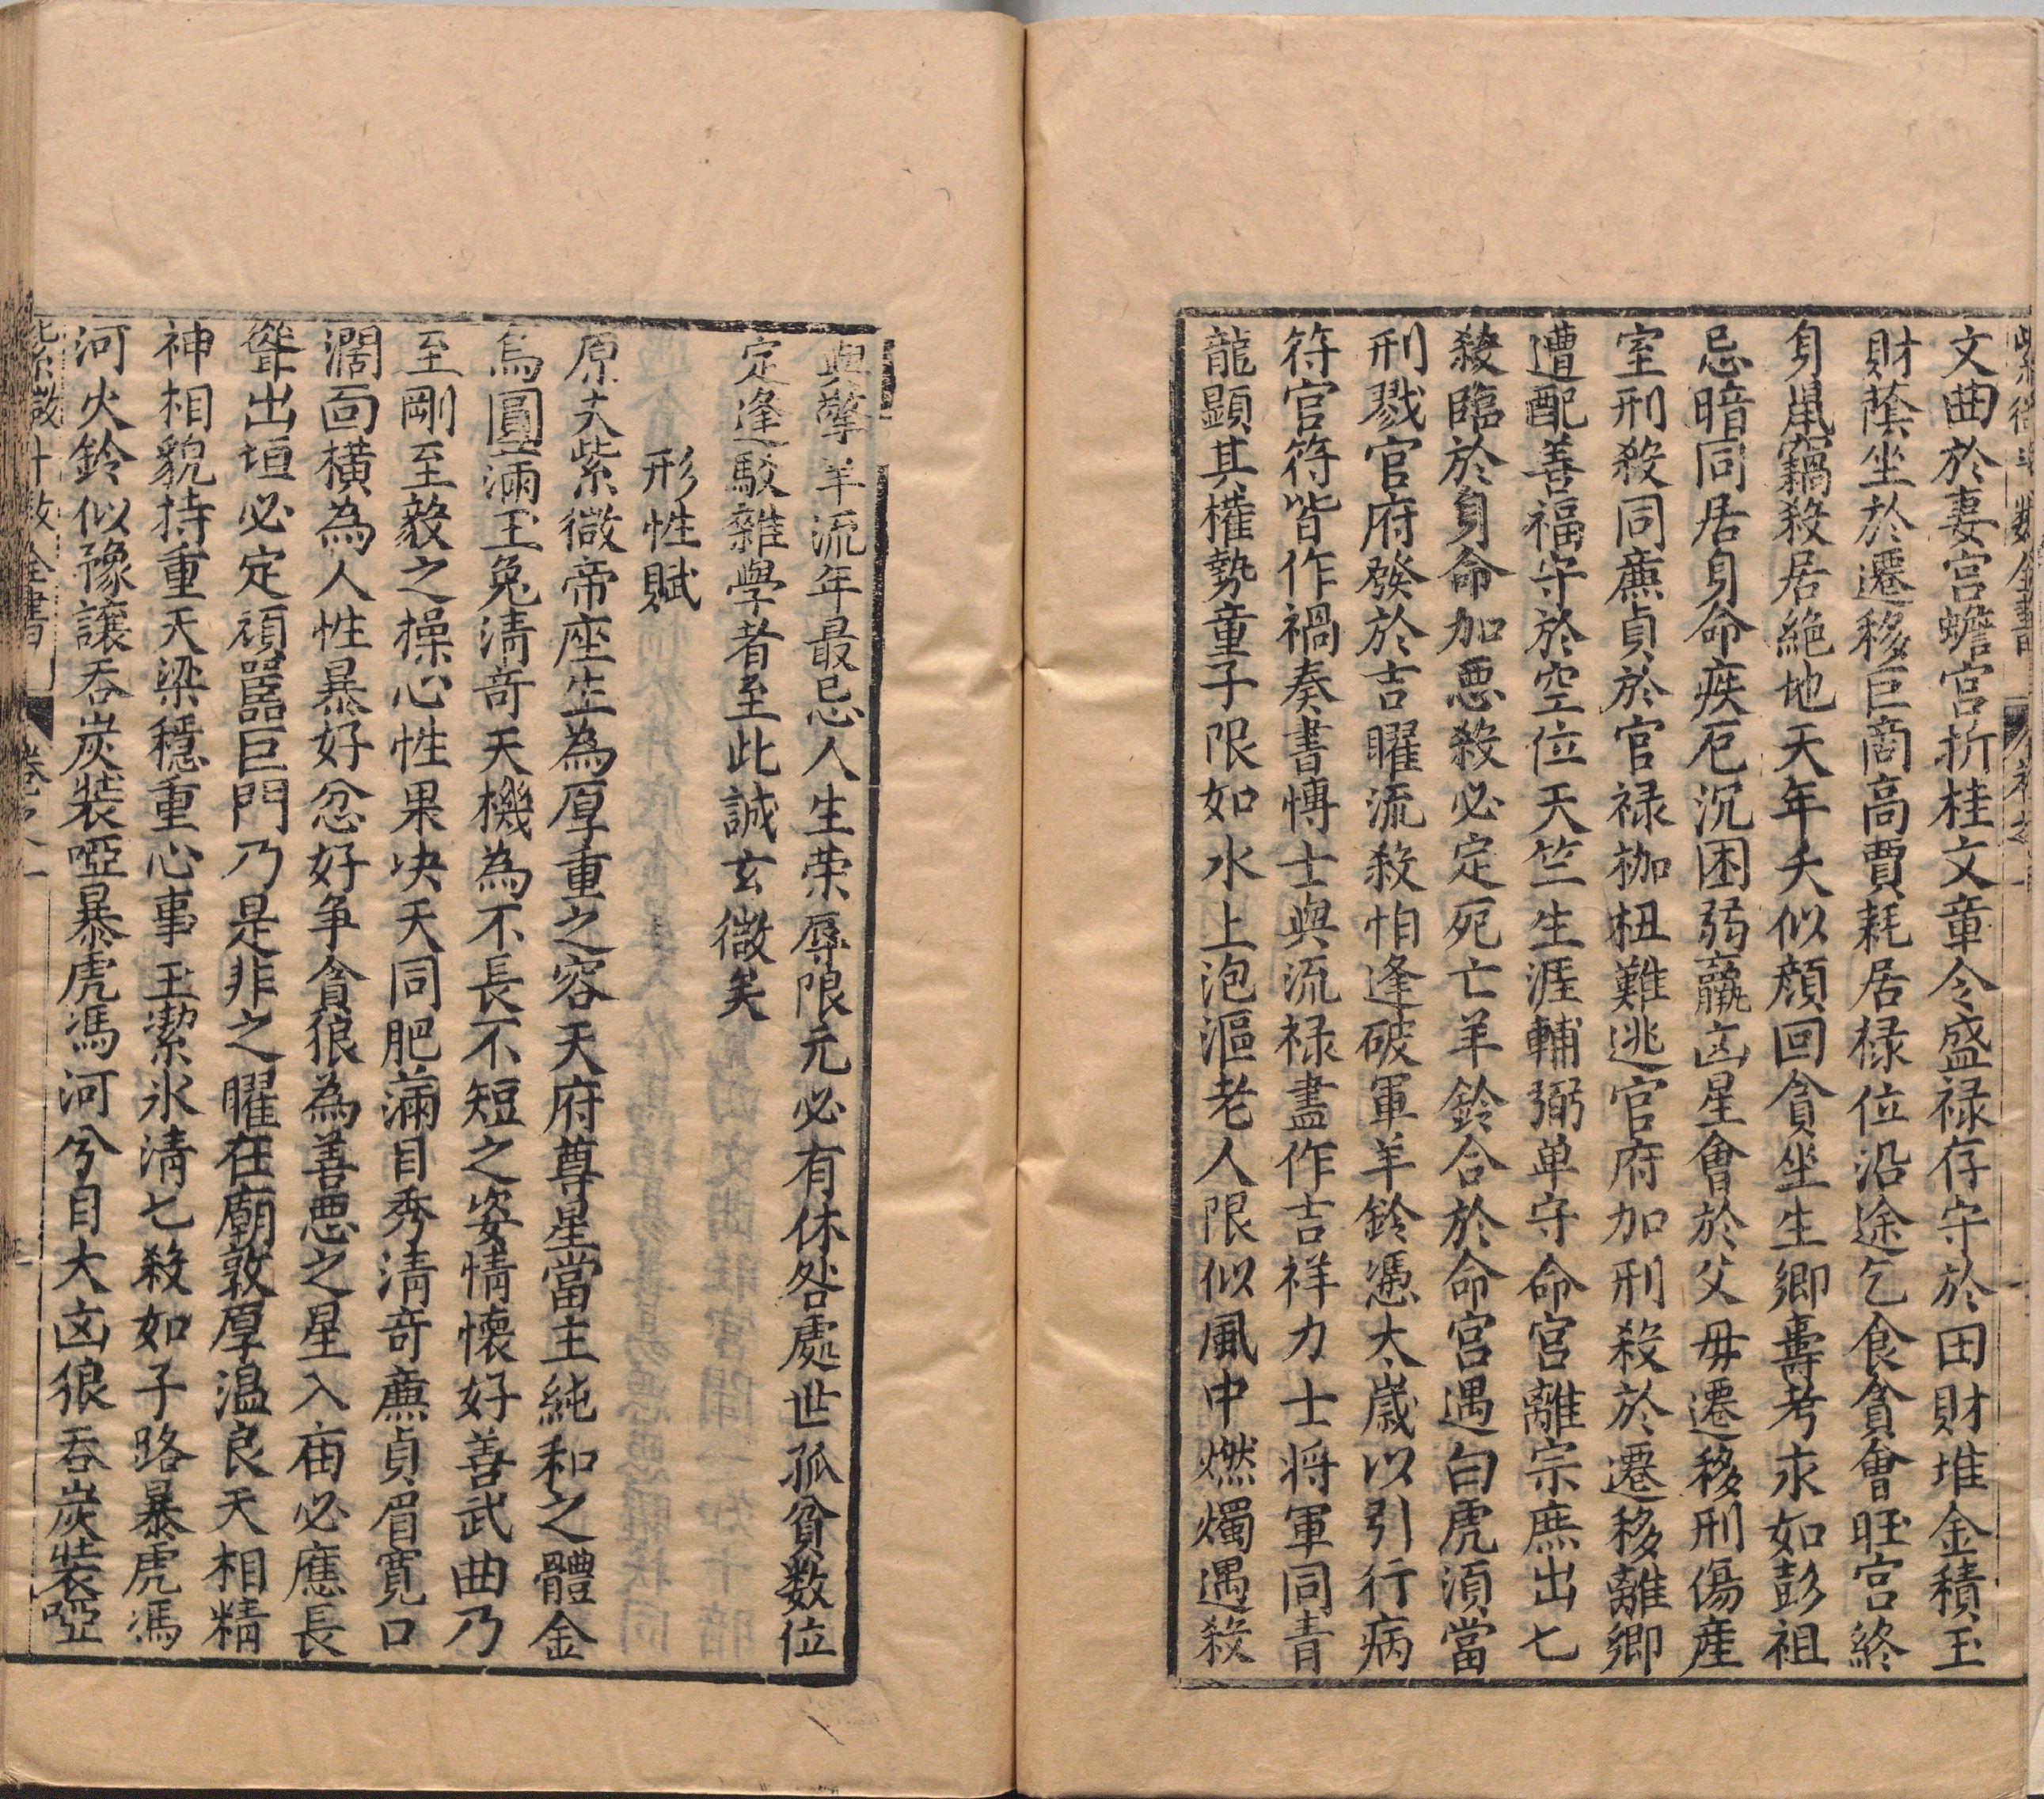 文曲於妻宫蟾宫折桂文章令盛禄存守於田財堆金積玉
財蔭坐於遷移巨商高賈耗居禄位沿途乞食貪會旺宫終
身鼠竊殺居絶地天年夭似顔回貪坐生鄉壽考永如彭祖
忌暗同居身命疾厄沉困弱羸凶星會於父母遷移刑傷産
室刑殺同廉貞於官禄枷杻難逃官府加刑殺於遷移離鄉
遭配善福守於空位天竺生涯輔弼单守命宫離宗庶出七
殺臨於身命加惡殺必定死亡羊鈴合於命宫遇白虎須當
刑戮官府發於吉曜流殺怕逢破軍羊鈴憑太歲以引行病
符官符皆作禍奏書博士與流禄盡作吉祥力士將軍同青
龍顕其權勢童子限如水上泡漚老人限似風中燃燭遇殺
與擎羊流年最忌人生荣辱限元必有休咎處世孤貧数位
定逢駁雜學者至此誠玄微矣
形性賦
原夫紫微帝座生為厚重之容天府尊星當主純和之體金
烏圓滿玉兔清奇天機為不長不短之姿情懷好善武曲乃
至剛至毅之操心性果决天同肥滿目秀清奇廉貞眉寬口
濶面横為人性暴好忿好争貪狼為善惡之星入庙必應長
聳出垣必定頑嚚巨門乃是非之曜在廟敦厚温良天相精
神相貌持重天梁穩重心事玉潔氷清七殺如子路暴虎馮
河火鈴似豫讓吞炭裝啞暴虎馮河兮目大凶狼吞炭裝啞
紫微斗数全書
卷之一